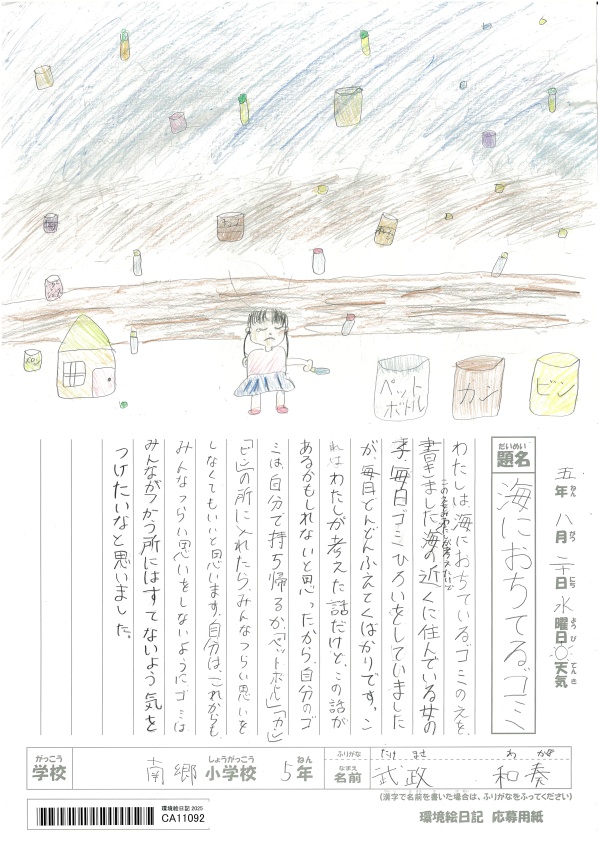 カン
ペットボトル
カン
ビン
五年八月二十日水曜日天気
ねん
がつ
にち
ようび
てんき
だいめい
題名
海におちてるゴミ
わたしは、海におちているゴミのえを、
書きました。海の近くに住んでいる女の
子、毎日ゴミひろいをしていました
が、毎日どんどんふえてくばかりです。こ
れはわたしが考えた話だけど、この話が
あるかもしれないと思ったから、自分のゴ
ミは、自分で持ち帰るか、「ペットボトル」「カン」
「ビン」の所に入れたら、みんなつらい思いを
しなくてもいいと思います。自分は、これからも、
みんなつらい思いをしないようにゴミは
みんながつかう所にはすてないよう気を
つけたいなと思いました。
がっこう
学校
南郷
しょうがっこう
小学校
5
ねん
年
ふりがな
なまえ
名前
たけ まさ わ かな
武政 和奏
(漢字で名前を書いた場合は、ふりがなをふってください)
環境絵日記2025
CA11092
環境絵日記 応募用紙